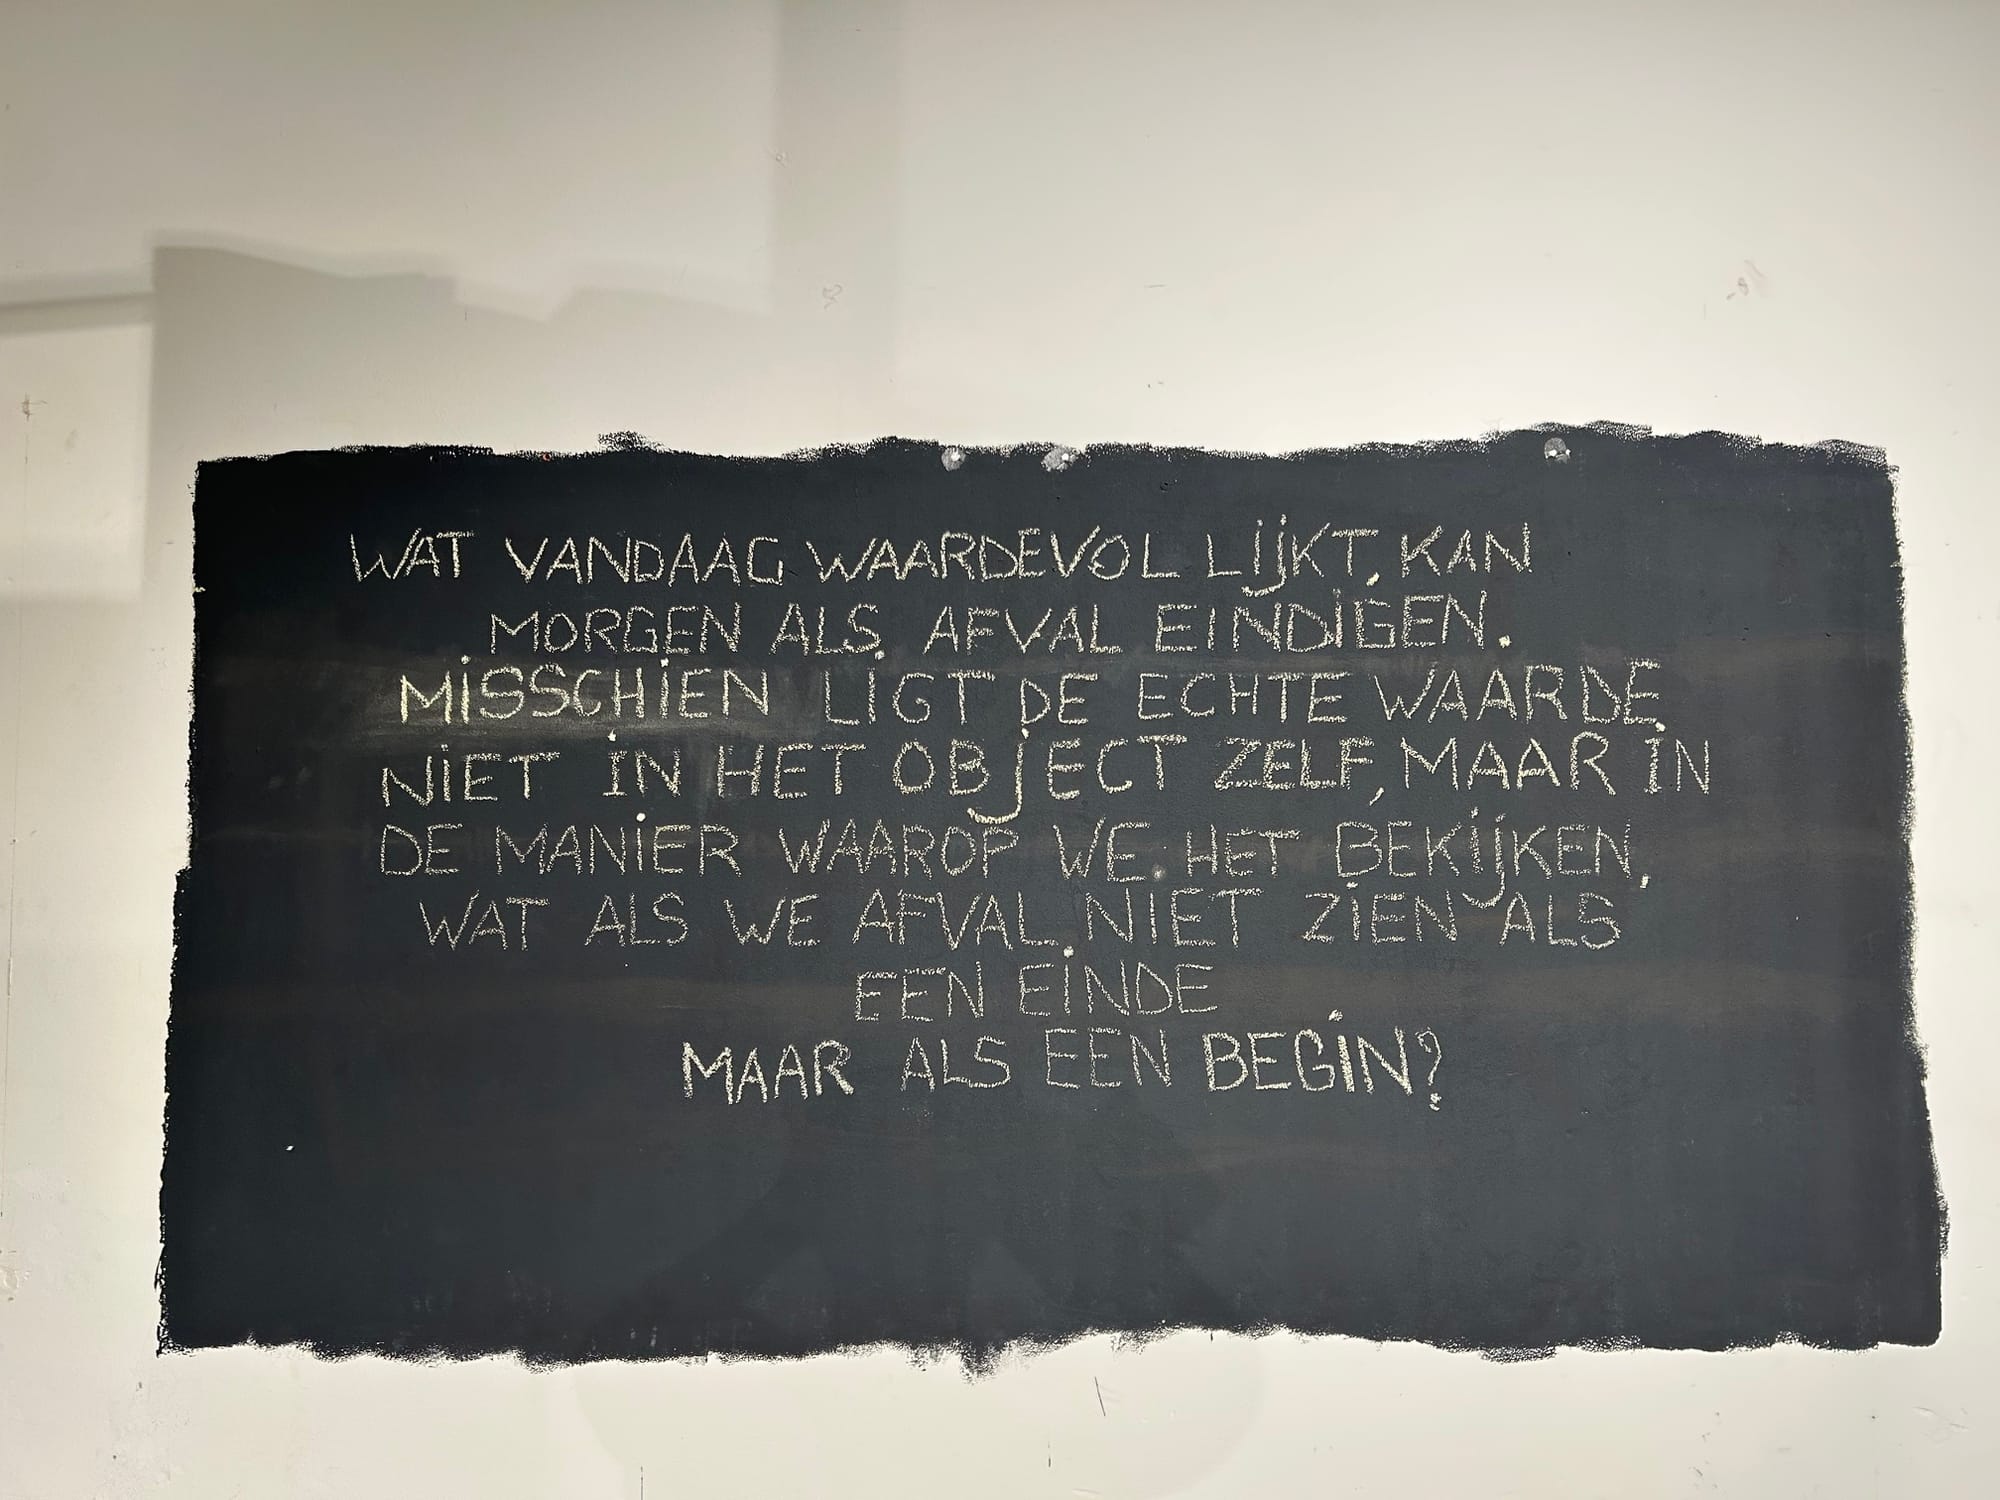 WAT VANDAAG WAARDEVOL LIJKT, KAN
MORGEN ALS AFVAL EINDIGEN.
MISSCHIEN LIGT DE ECHTE WAARDE
NIET IN HET OBJECT ZELF, MAAR IN
DE MANIER WAAROP WE HET BEKIJKEN,
WAT ALS WE AFVAL NIET ZIEN ALS
EEN EINDE
MAAR ALS EEN BEGIN?